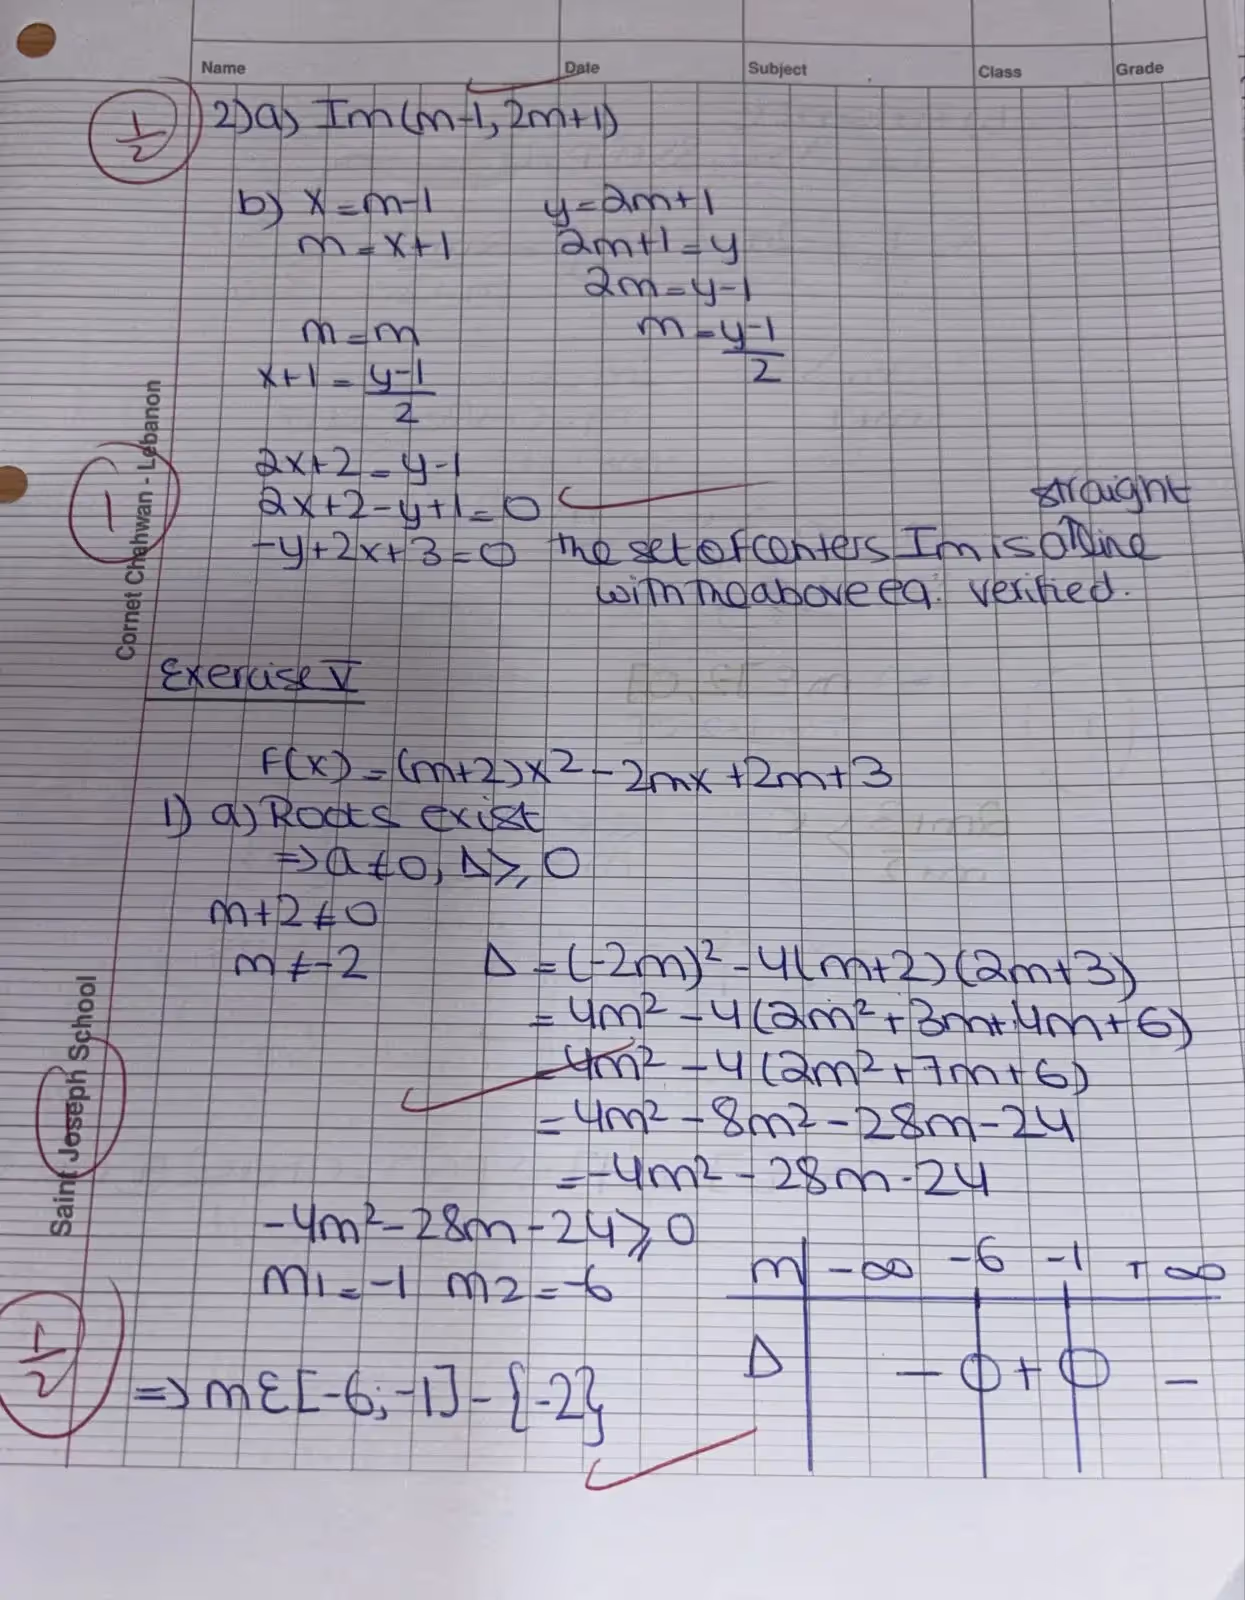 Name Date Subject Class Grade
1/2
2) a) Im(m-1, 2m+1)
b) x=m-1 y=2m+1
m=x+1 2m+1=y
2m=y-1
m=m m=(y-1)/2
x+1=(y-1)/2
2x+2=y-1
1
2x+2-y+1=0
-y+2x+3=0 the set of centers Im is a straight line
with the above eq. verified.
Cornet Chahwan - Lebanon
Exercise V
F(x)=(m+2)x²-2mx+2m+3
1) a) Roots exist
=> a≠0, Δ⩾0
m+2≠0
m≠-2 Δ=(-2m)²-4(m+2)(2m+3)
=4m²-4(2m²+3m+4m+6)
=4m²-4(2m²+7m+6)
=4m²-8m²-28m-24
=-4m²-28m-24
Saint Joseph School
-4m²-28m-24⩾0
m1=-1 m2=-6
m -∞ -6 -1 +∞
Δ - 0 + 0 -
=> m∈[-6;-1]-{-2}